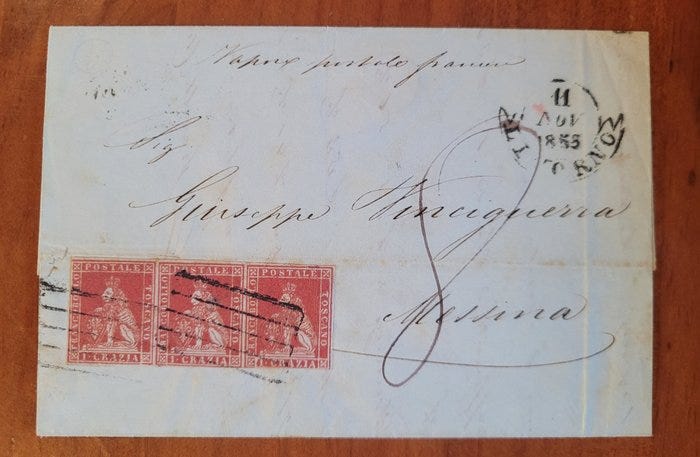 Vapore postale francese
11
NOV
1855
LIVORNO
Sig
Giuseppe Vinciguerra
Messina
8
FRANCOBOLLO POSTALE TOSCANO
1 CRAZIA
FRANCOBOLLO POSTALE TOSCANO
1 CRAZIA
FRANCOBOLLO POSTALE TOSCANO
1 CRAZIA